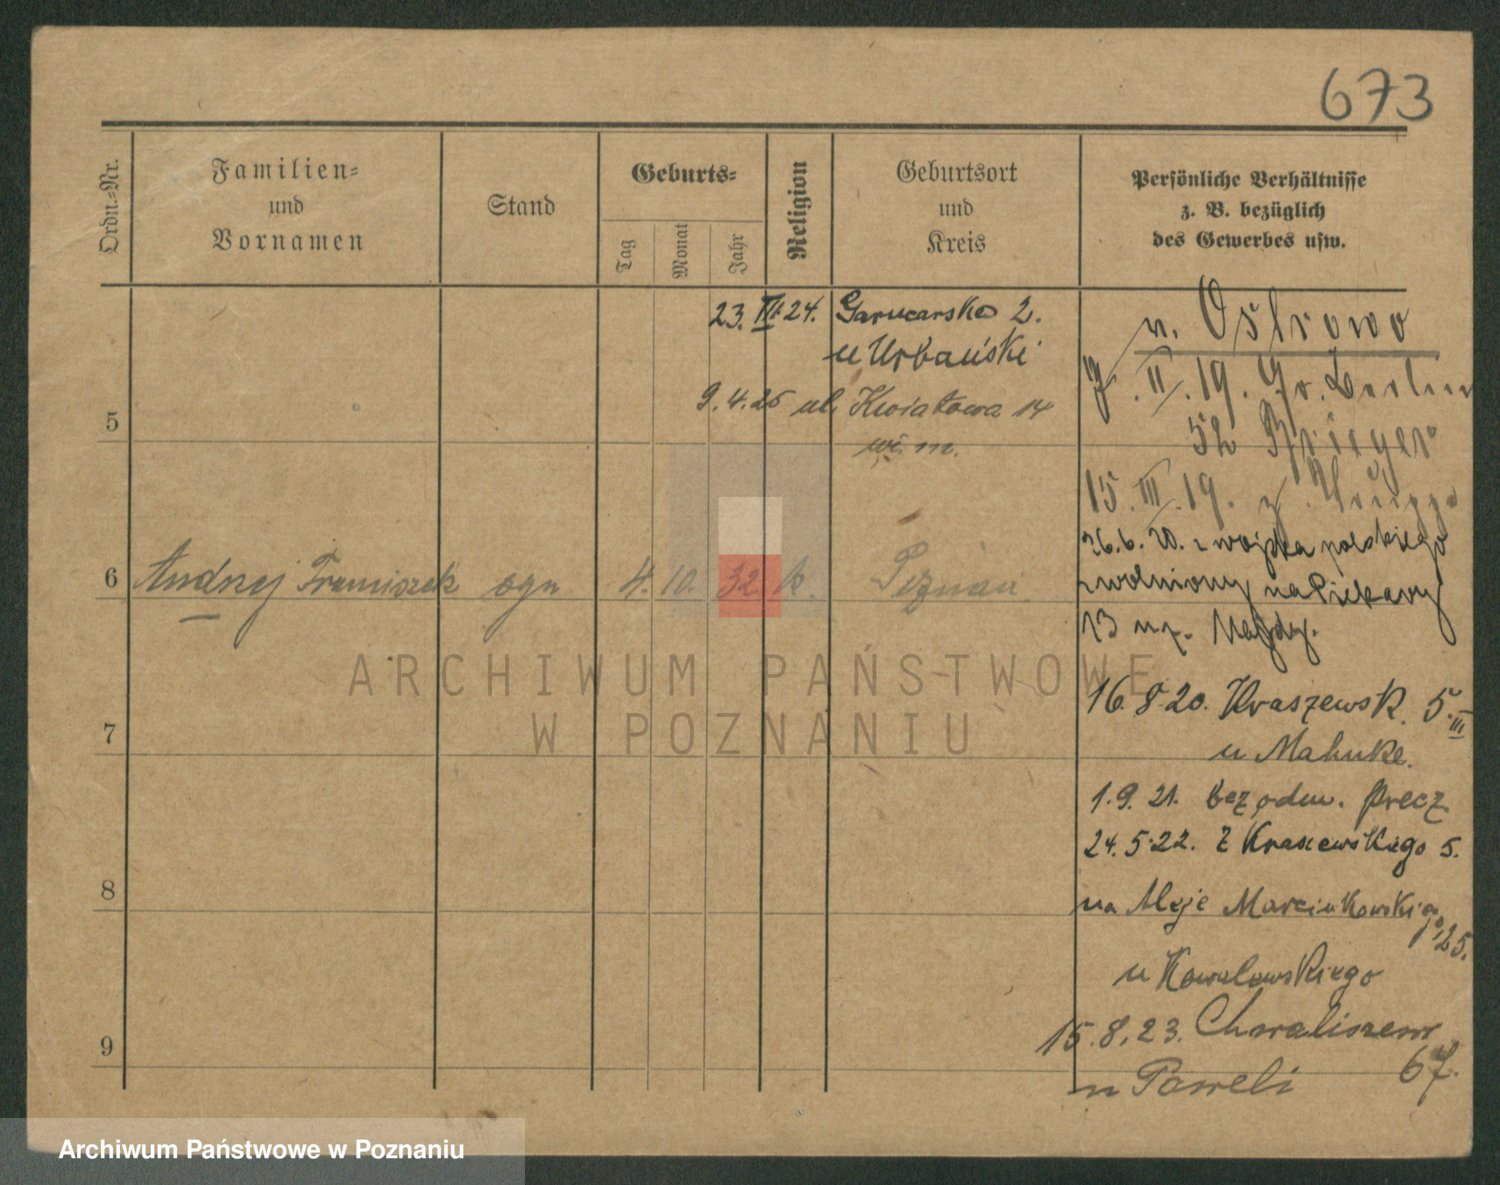 673
Ordn.-Nr.
Familien-
und
Vornamen
Stand
Geburts-
Tag
Monat
Jahr
Religion
Geburtsort
und
Kreis
Persönliche Verhältnisse
z. B. bezüglich
des Gewerbes usw.
23. VI. 24. Garncarska 2.
u Urbański
9.4.25 ul. Kwiatowa 14
w. m.
n. Ostrowo
7. II. 19. Berlin
52 Brieger
15. III. 19. z.
26.6.20. z wojska polskiego
zwolniony na Piekary
13
16.8.20. Kraszewsk. 5. III
u Mahnke.
1.9.21. bez odm. precz
24.5.22. Z Kraszewskiego 5.
na Aleje Marcinkowskiego 25.
u Kowalewskiego
15.8.23. Chwaliszewo
67.
u Paweli
5
6 Andrzej Franciszek syn 4. 10. 32 k. Poznań
7
8
9
ARCHIWUM PAŃSTWOWE
W POZNANIU
Archiwum Państwowe w Poznaniu